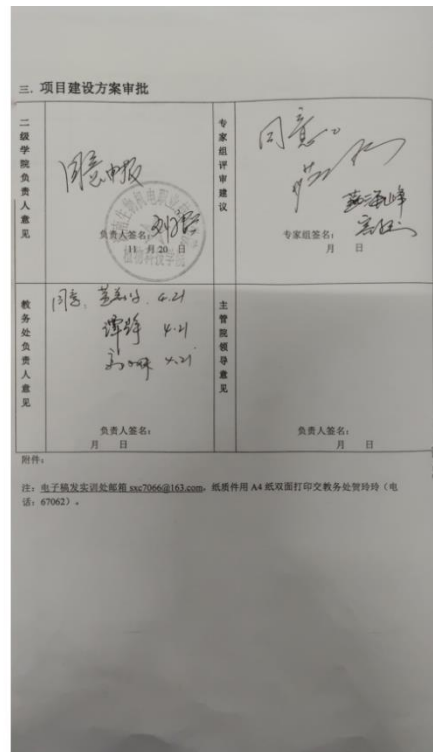 三. 项目建设方案审批
二级学院负责人意见
同意申报
负责人签名:
11 月 20 日
专家组评审建议
同意。
专家组签名:
月 日
教务处负责人意见
同意. 4.21
谭 4.21
4.21
负责人签名:
月 日
主管院领导意见
负责人签名:
月 日
附件:
注: 电子稿发实训处邮箱 sxc7066@163.com, 纸质件用 A4 纸双面打印交教务处贺玲玲(电
话: 67062)。